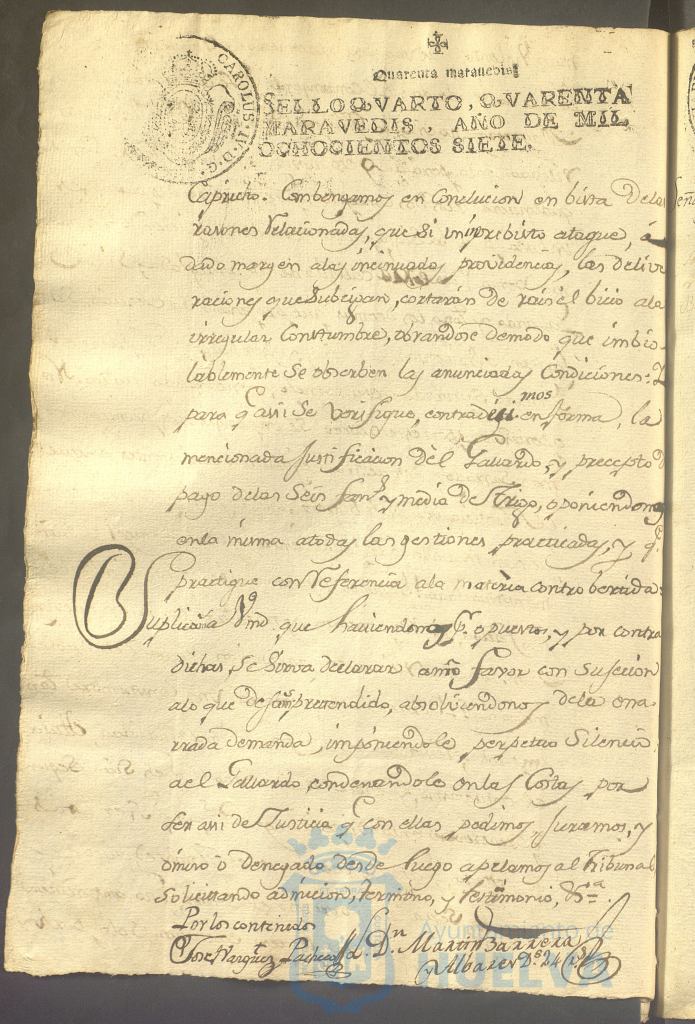 CAROLUS IV D. G.
Quarenta marauedis
SELLO QVARTO, QVARENTA
MARAVEDIS, AÑO DE MIL
OCHOCIENTOS SIETE.
Capricho. Conbengamos en Conclucion en bista delas
rasones Relacionadas, que si un imprebisto ataque, á
dado margen alas incinuadas providencias, las delive
raciones que subcigan, cortarán de rais el bicio ala
irregular Constumbre, obrandose demodo que imbio-
lablemente se obserben las anunciadas Condiciones. Y
para q. asi se verifique, contradecimos en forma, la
mencionada Justificacion del Gallardo, y precepto d
pago delas seis fang. y media de Trigo, oponiendonos
enla misma atodas las gestiones practicadas, y q.
practique con Referencia ala materia controbertida:
Suplicamos Vmd. que haviendonos p. opuestos, y por contra
dichas, se sirva declarar a nro favor con sujecion
alo que dejamos pretendido, absolviendonos dela ena-
rrada demanda, imponiendole perpetuo silencio
ael Gallardo condenandole enlas Costas por
ser asi de Justicia q. con ellas pedimos, Juramos, y
omiso ó denegado desde luego apelamos al Tribunal
solicitando admicion, termino, y testimonio, &.a
Por los contenidos
Jose Vazquez Pacheco
D.n Martin Barrera
y Albarez D.s 24 r.s
Ayuntamiento de
HUELVA